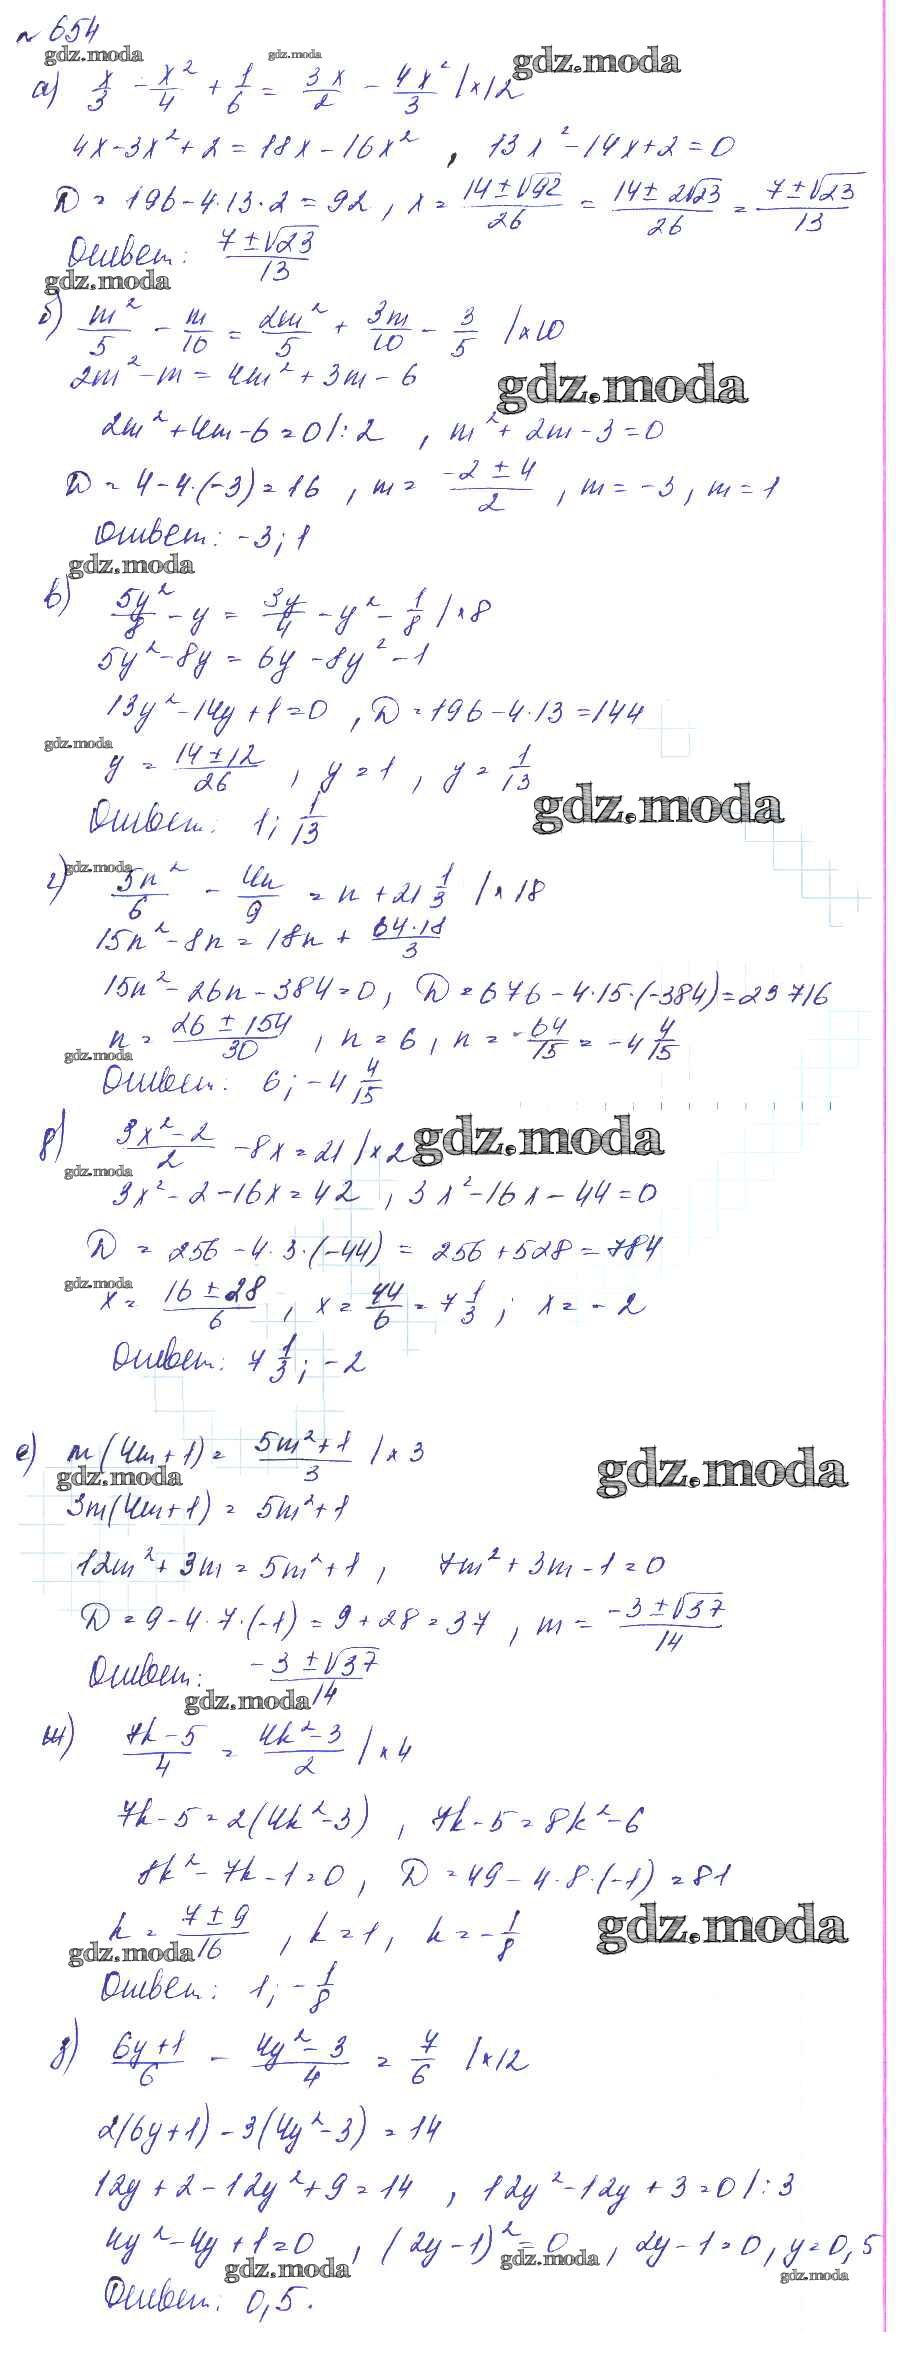 № 654
gdz.moda gdz.moda gdz.moda
а) x/3 - x²/4 + 1/6 = 3x/2 - 4x²/3 | ×12
4x - 3x² + 2 = 18x - 16x² , 13x² - 14x + 2 = 0
D = 196 - 4·13·2 = 92 , x = (14 ± √92)/26 = (14 ± 2√23)/26 = (7 ± √23)/13
Ответ: (7 ± √23)/13
gdz.moda
б) m²/5 - m/10 = 2m²/5 + 3m/10 - 3/5 | ×10
2m² - m = 4m² + 3m - 6
gdz.moda
2m² + 4m - 6 = 0 | : 2 , m² + 2m - 3 = 0
D = 4 - 4·(-3) = 16 , m = (-2 ± 4)/2 , m = -3 , m = 1
Ответ: -3; 1
gdz.moda
в) 5y²/8 - y = 3y/4 - y² - 1/8 | ×8
5y² - 8y = 6y - 8y² - 1
13y² - 14y + 1 = 0 , D = 196 - 4·13 = 144
gdz.moda
y = (14 ± 12)/26 , y = 1 , y = 1/13
gdz.moda
Ответ: 1; 1/13
gdz.moda
г) 5n²/6 - 4n/9 = n + 21 1/3 | ×18
15n² - 8n = 18n + (64·18)/3
15n² - 26n - 384 = 0 , D = 676 - 4·15·(-384) = 23716
n = (26 ± 154)/30 , n = 6 , n = -64/15 = -4 4/15
gdz.moda
Ответ: 6; -4 4/15
д) (3x² - 2)/2 - 8x = 21 | ×2 gdz.moda
gdz.moda
3x² - 2 - 16x = 42 , 3x² - 16x - 44 = 0
D = 256 - 4·3·(-44) = 256 + 528 = 784
gdz.moda
x = (16 ± 28)/6 , x = 44/6 = 7 1/3 ; x = -2
Ответ: 7 1/3; -2
е) m(4m + 1) = (5m² + 1)/3 | ×3
gdz.moda gdz.moda
3m(4m + 1) = 5m² + 1
12m² + 3m = 5m² + 1 , 7m² + 3m - 1 = 0
D = 9 - 4·7·(-1) = 9 + 28 = 37 , m = (-3 ± √37)/14
Ответ: (-3 ± √37)/14
gdz.moda
ж) (7k - 5)/4 = (4k² - 3)/2 | ×4
7k - 5 = 2(4k² - 3) , 7k - 5 = 8k² - 6
8k² - 7k - 1 = 0 , D = 49 - 4·8·(-1) = 81
k = (7 ± 9)/16 , k = 1 , k = -1/8
gdz.moda gdz.moda
Ответ: 1; -1/8
з) (6y + 1)/6 - (4y² - 3)/4 = 7/6 | ×12
2(6y + 1) - 3(4y² - 3) = 14
12y + 2 - 12y² + 9 = 14 , 12y² - 12y + 3 = 0 | : 3
4y² - 4y + 1 = 0 , (2y - 1)² = 0 , 2y - 1 = 0 , y = 0,5
gdz.moda gdz.moda gdz.moda
Ответ: 0,5.